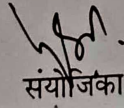 संयोजिका